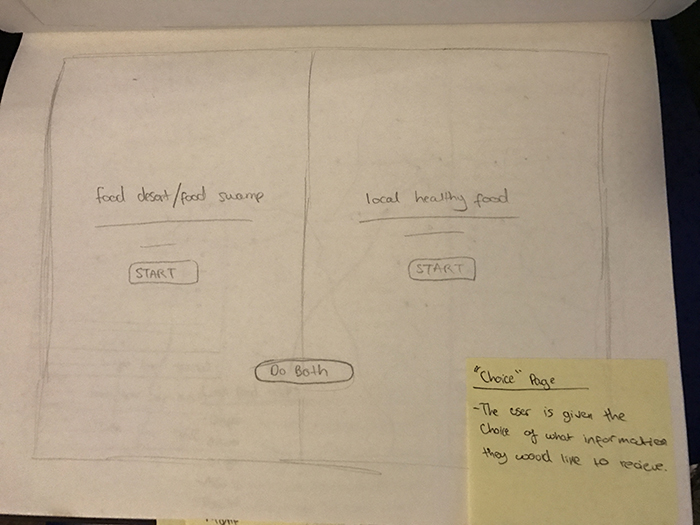 food desert/food swamp
local healthy food
START
START
Do Both
"Choice" Page
-The user is given the
choice of what information
they woood like to recieve.